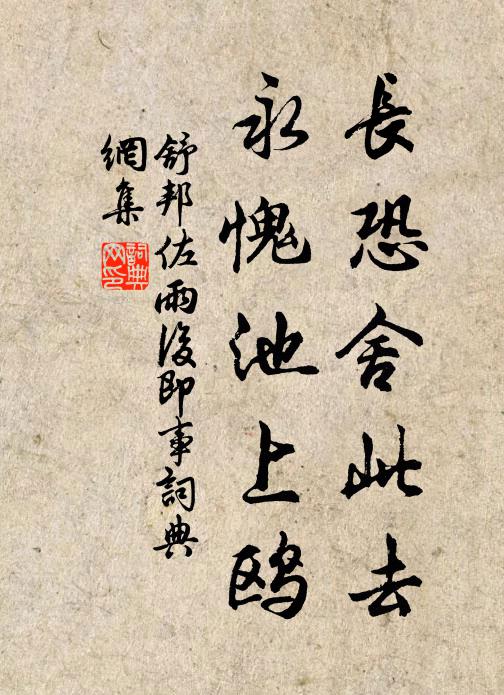 長恐舍此去
永愧池上鸥
舒邦佐雨後即事詞典
網集
詞典
网印